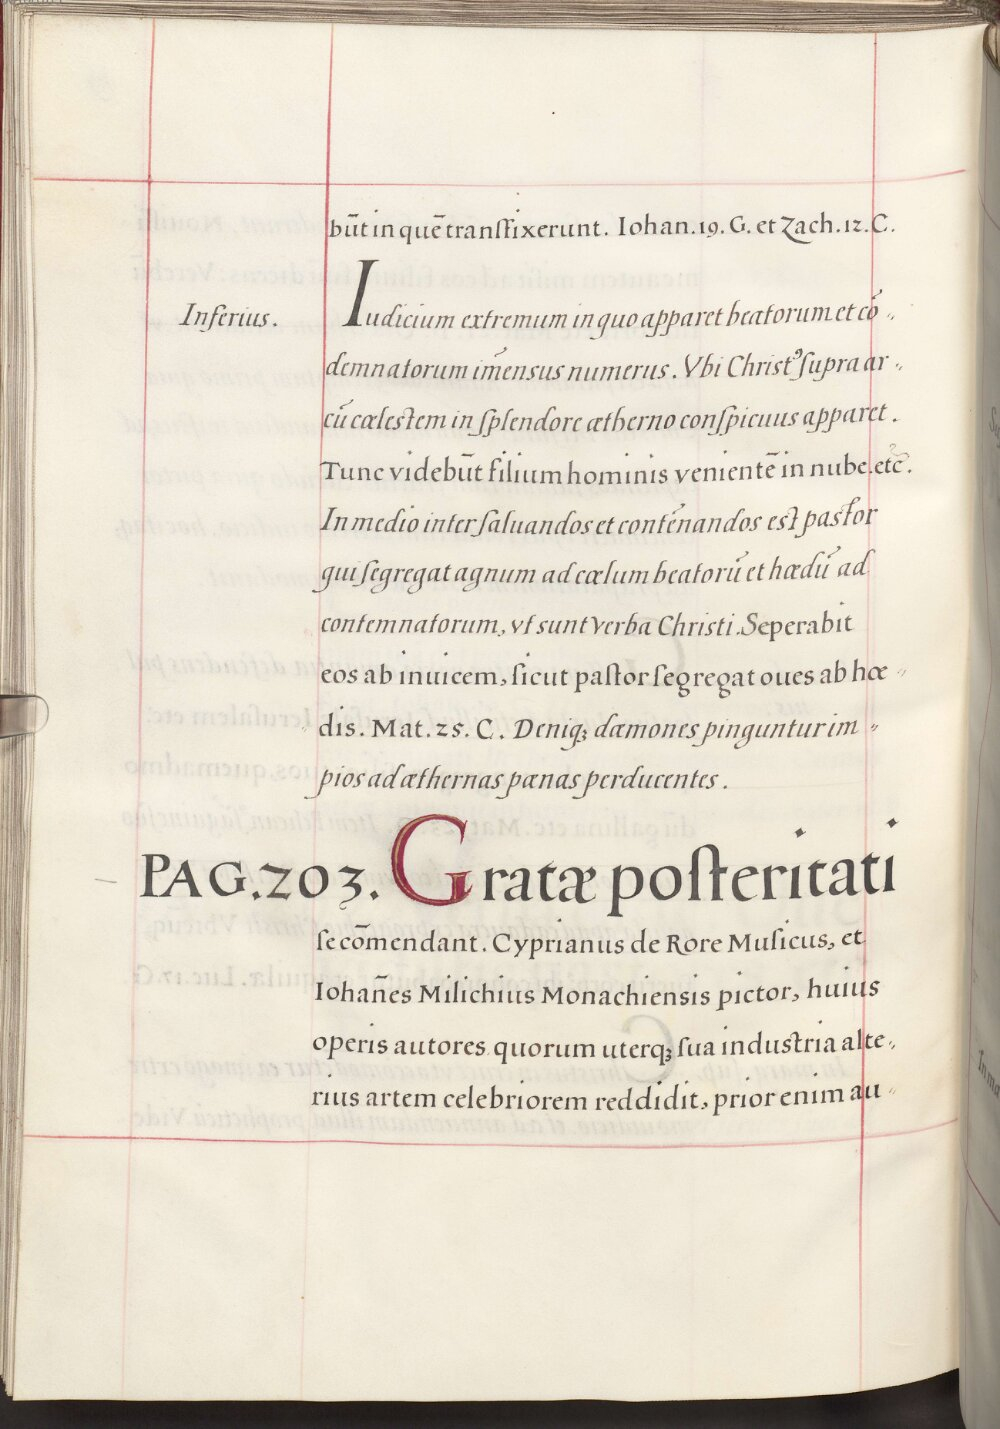 būt in quē transfixerunt. Iohan. 19. G. et Zach. 12. C.
Inferius. Iudicium extremum in quo apparet beatorum et cō-
demnatorum im̄ensus numerus. Vbi Christꝰ supra ar-
cū cælestem in splendore ætherno conspicuus apparet.
Tunc videbūt filium hominis venientē in nube. etc̄.
In medio inter saluandos et contēnandos est pastor
qui segregat agnum ad cœlum beatorū et hædū ad
contemnatorum, vt sunt verba Christi. Seperabit
eos ab inuicem, sicut pastor segregat oues ab hœ-
dis. Mat. 25. C. Deniqꝫ dæmones pinguntur im-
pios ad æthernas pœnas perducentes.
PAG. 203. Gratæ posteritati
se com̄endant. Cyprianus de Rore Musicus, et
Iohan̄es Milichius Monachiensis pictor, huius
operis autores quorum uterqꝫ sua industria alte-
rius artem celebriorem reddidit, prior enim au-